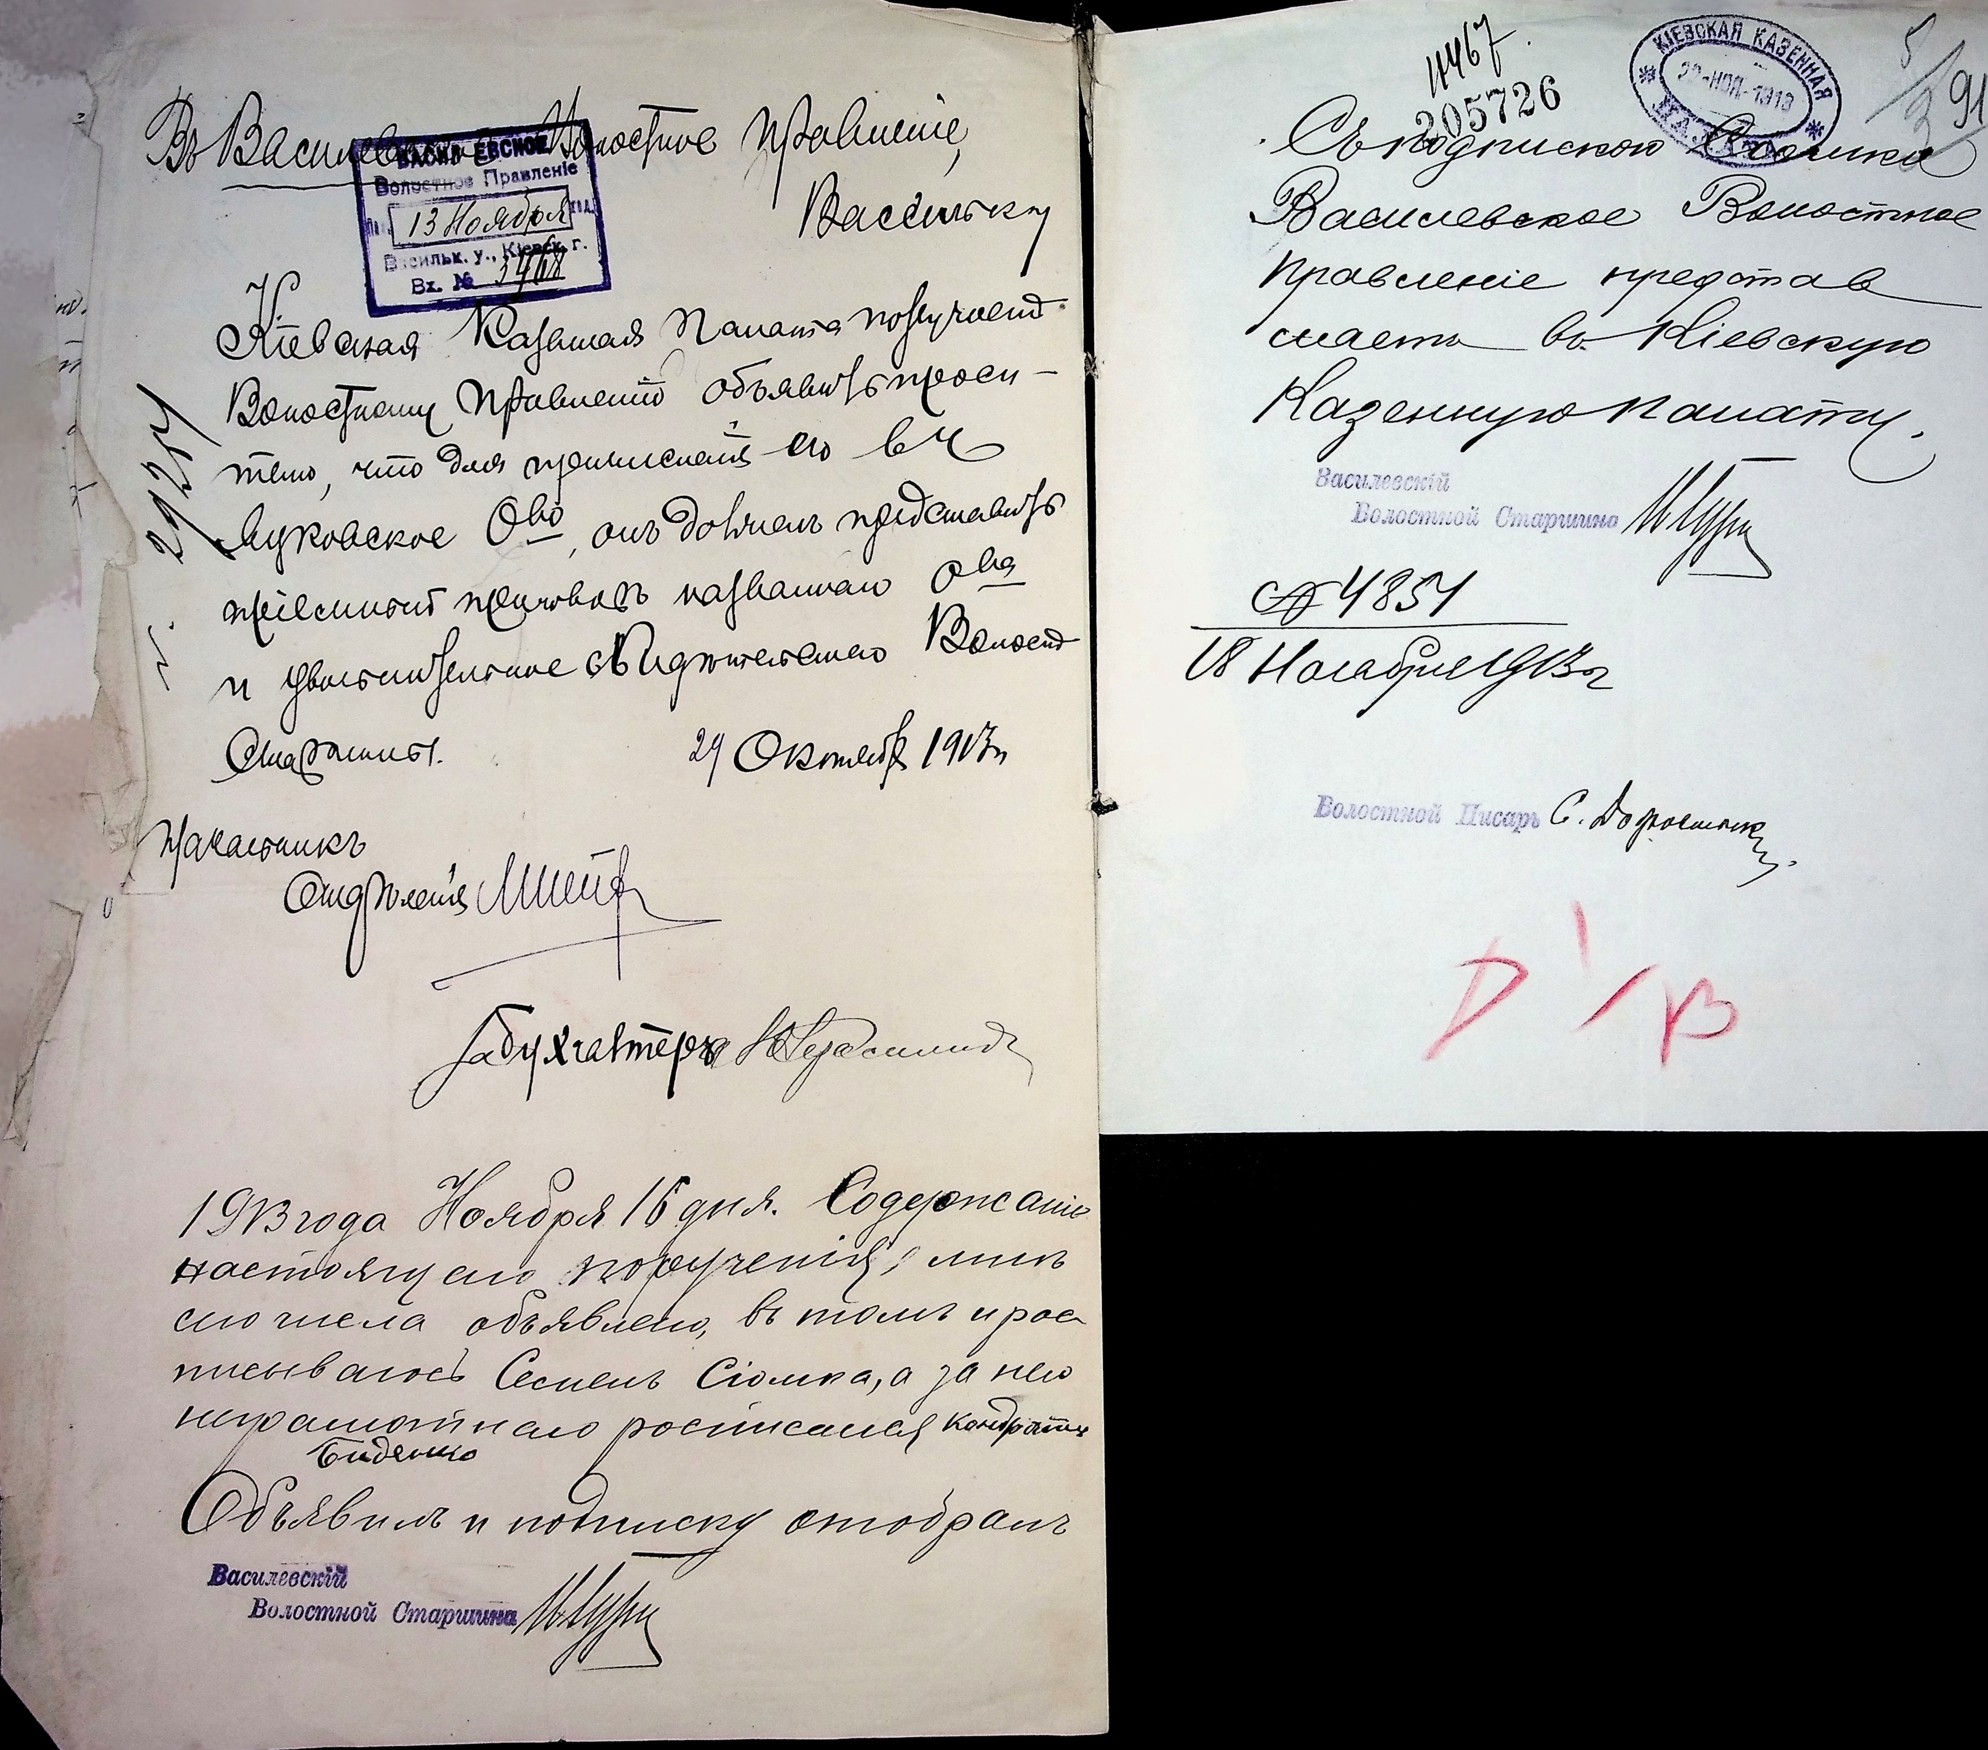 Въ Василевское Волостное Правленіе,
Васильк. у.
ВАСИЛЕВСКОЕ
Волостное Правленіе
13 Ноября
Васильк. у., Кіевск. г.
Вх. № 3468
Кіевская Казенная Палата поручаетъ
Волостному Правленію объявить проси-
телю, что для причисленія его въ
Луковское О-во, онъ долженъ представить
пріемный приговоръ названнаго О-ва
и увольнительное свидѣтельство Волостн.
Старшины. 29 Октября 1913 г.
№ 29254
Начальникъ
Отдѣленія
за бухгалтера
1913 года Ноября 16 дня. Содержаніе
настоящаго порученія, мнѣ
сего числа объявлено, въ томъ и рос-
писываюсь Семенъ Сіомка, а за него
неграмотнаго росписался Кондратъ
Биденко
Объявилъ и подписку отобралъ
Василевскій
Волостной Старшина
4467.
205726
КІЕВСКАЯ КАЗЕННАЯ
НОЯ 1913
ПАЛАТА
91
Съ подпискою Сіомки
Василевское Волостное
Правленіе представ
ляетъ въ Кіевскую
Казенную Палату.
Василевскій
Волостной Старшина
№ 4854
18 Ноября 1913 г.
Волостной Писарь С.